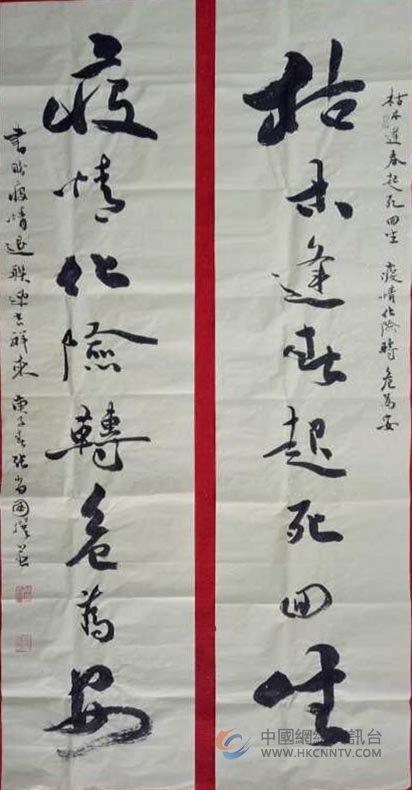 枯木逢春起死回生 疫情化險轉危為安
枯木逢春起死回生
疫情化險轉危為安
書盼疫情退 聯迎吉祥來 庚子春 張當國撰並
中國網絡電訊台
WWW.HKCNNTV.COM